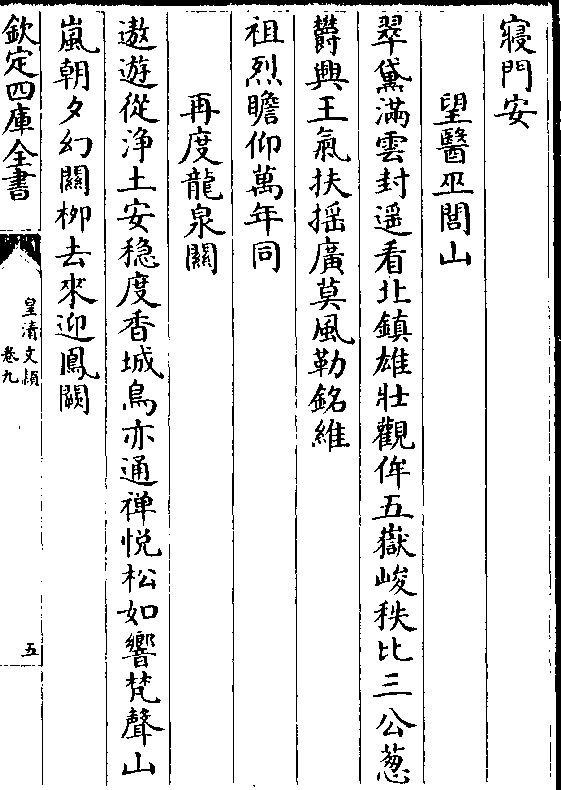 寢門安
望醫巫閭山
翠黛滿雲封遥看北鎮雄壯觀侔五嶽峻秩比三公葱
欝興王氣扶揺廣莫風勒銘維
祖烈瞻仰萬年同
再度龍泉關
遨遊從浄土安穏度香城鳥亦通禅悦松如響梵聲山
嵐朝夕幻關栁去來迎鳳闕
欽定四庫全書
皇清文頴
卷九
五